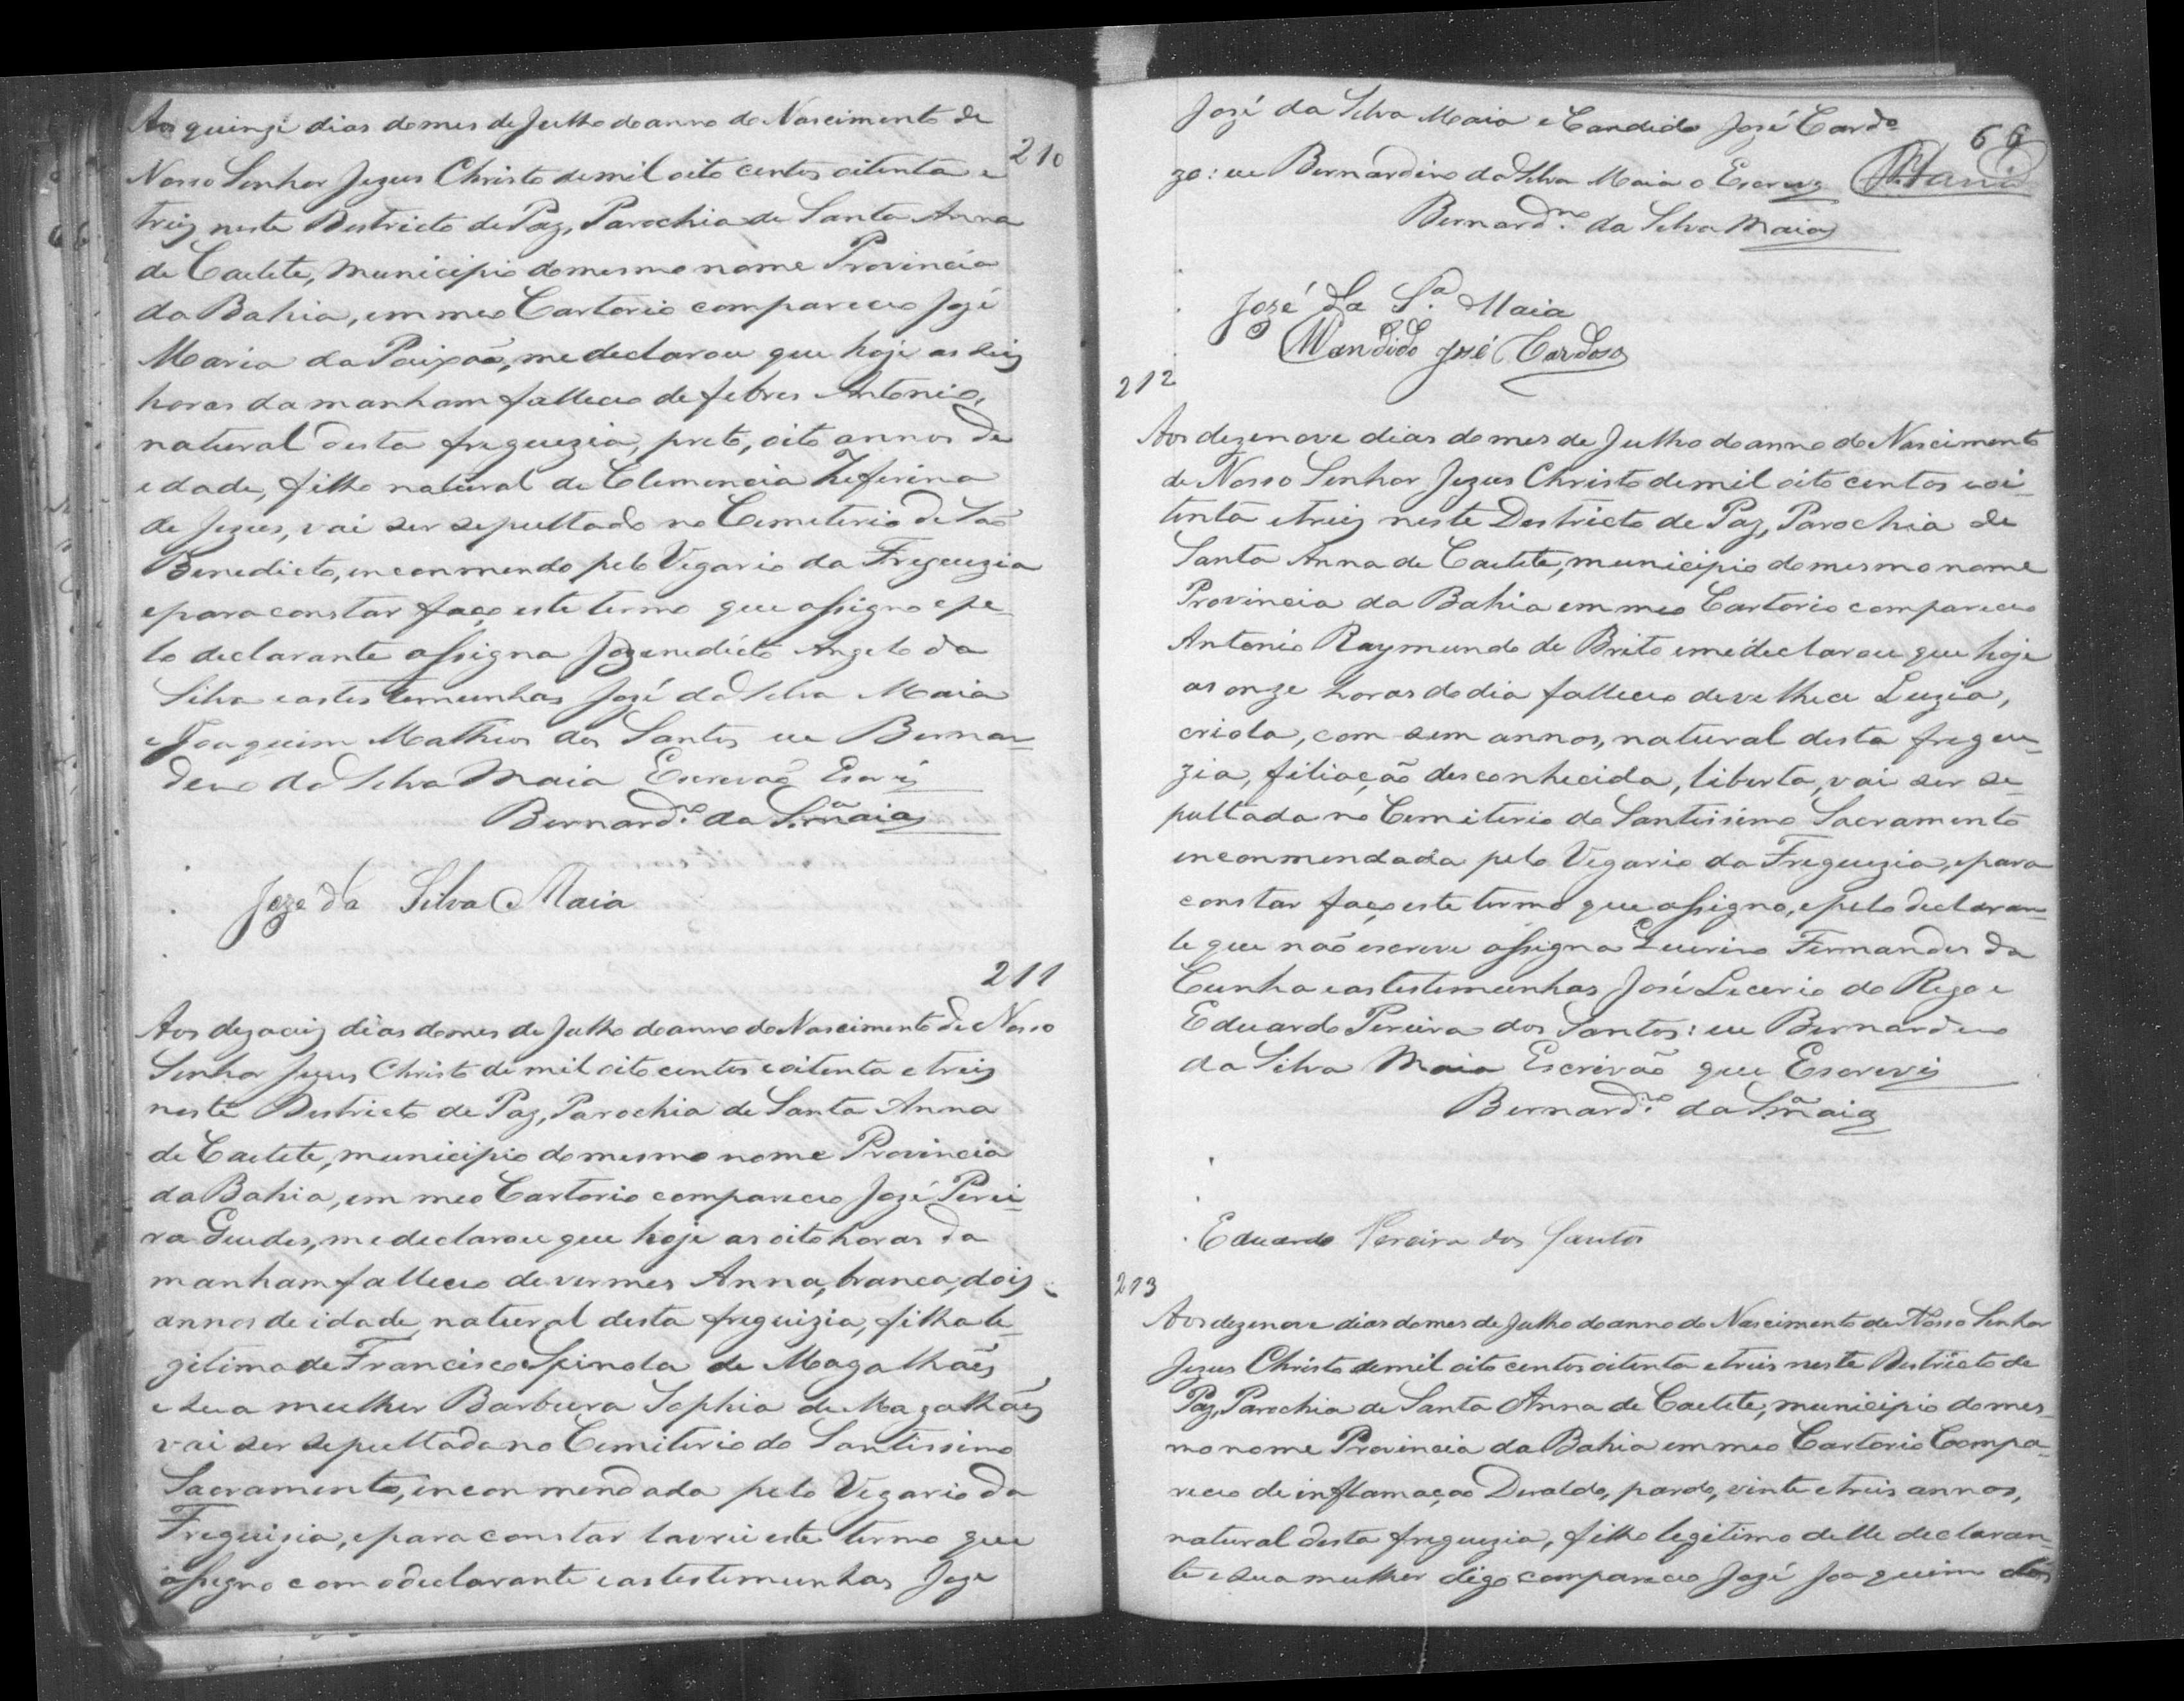 Aos quinze dias do mes de Julho do anno do Nascimento de
210
Nosso Senhor Jezus Christo de mil oito centos oitenta e
treiz neste Destricto de Paz, Parochia de Santa Anna
de Caetete, Municipio do mesmo nome Provincia
da Bahia, em meo Cartorio compareceo Jozé
Maria da Paixão, me declarou que hoje as seis
horas da manham falleceo de febres Antonio,
natural desta freguezia, preto, oito annos de
edade, filho natural de Clemencia Zeferina
de Jezus, vai ser sepultado no Cemeterio de São
Benedicto, enconmendo pelo Vegario da Freguezia
e para constar faço este termo que assigno e pe-
lo declarante assigna Benedicto Angelo da
Silva e as testemunhas Jozé da Silva Maia
e Joaquim Matheos dos Santos eu Bernar-
deno da Silva Maia Escrevaõ Escrevi
Bernard.no da S.a Maia
Joze da Silva Maia
211
Aos dezaceiz dias do mes de Julho do anno do Nascimento de Nosso
Senhor Jezus Christo de mil oito centos e oitenta e treiz
neste Destricto de Paz, Parochia de Santa Anna
de Caetete, municipio do mesmo nome Provincia
da Bahia, em meo Cartorio compareceo Jozé Perei-
ra Guedes, me declarou que hoje as oito horas da
manham falleceo de vermes Anna, branca, dois
annos de idade, natural desta freguizia, filha le-
gitima de Francisco Spinola de Magalhães
e sua mulher Barbora Sophia de Magalhães
vai ser sepultada no Cemiterio do Santissimo
Sacramento, enconmendada pelo Vegario da
Freguizia, e para constar lavrei este termo que
assigno com o declarante e as testemunhas Joze
José da Silva Maia e Candido José Cardo
66
zo: eu Bernardino da Silva Maia o Escrevy
Bernard.no da Silva Maia
José da S.a Maia
Candido José Cardoso
212
Aos dezenove dias do mes de Julho do anno do Nascimento
de Nosso Senhor Jezus Christo de mil oito centos e oi-
tenta e treiz neste Destricto de Paz, Parochia de
Santa Anna de Caetete, municipio do mesmo nome
Provincia da Bahia em meo Cartorio compareceo
Antonio Raymundo de Brito e me declarou que hoje
as onze horas do dia falleceo de velhece Luzia,
criola, com sem annos, natural desta fregue-
zia, filiação desconhecida, liberta, vai ser se-
pultada no Cemiterio do Santissimo Sacramento
enconmendada pelo Vegario da Freguezia, e para
constar faço este termo que assigno, e pelo declaran-
te que não escreve assigna Querino Fernandes da
Cunha e as testemunhas José Licerio do Rego e
Eduardo Pereira dos Santos: eu Bernardeno
da Silva Maia Escrivão que Escrevy
Bernard.no da S.a Maia
Eduardo Pereira dos Santos
213
Aos dezenove dias do mes de Julho do anno do Nascimento de Nosso Senhor
Jezus Christo de mil oito centos oitenta e treis neste Destricto de
Paz, Parochia de Santa Anna de Caetete, municipio do mes-
mo nome Provincia da Bahia em meo Cartorio Compa-
receo de inflamação Deraldo, pardo, vinte e treis annos,
natural desta freguezia, filho legitimo delle declaran-
te e sua mulher digo compareceo Jozé Joaquim dos